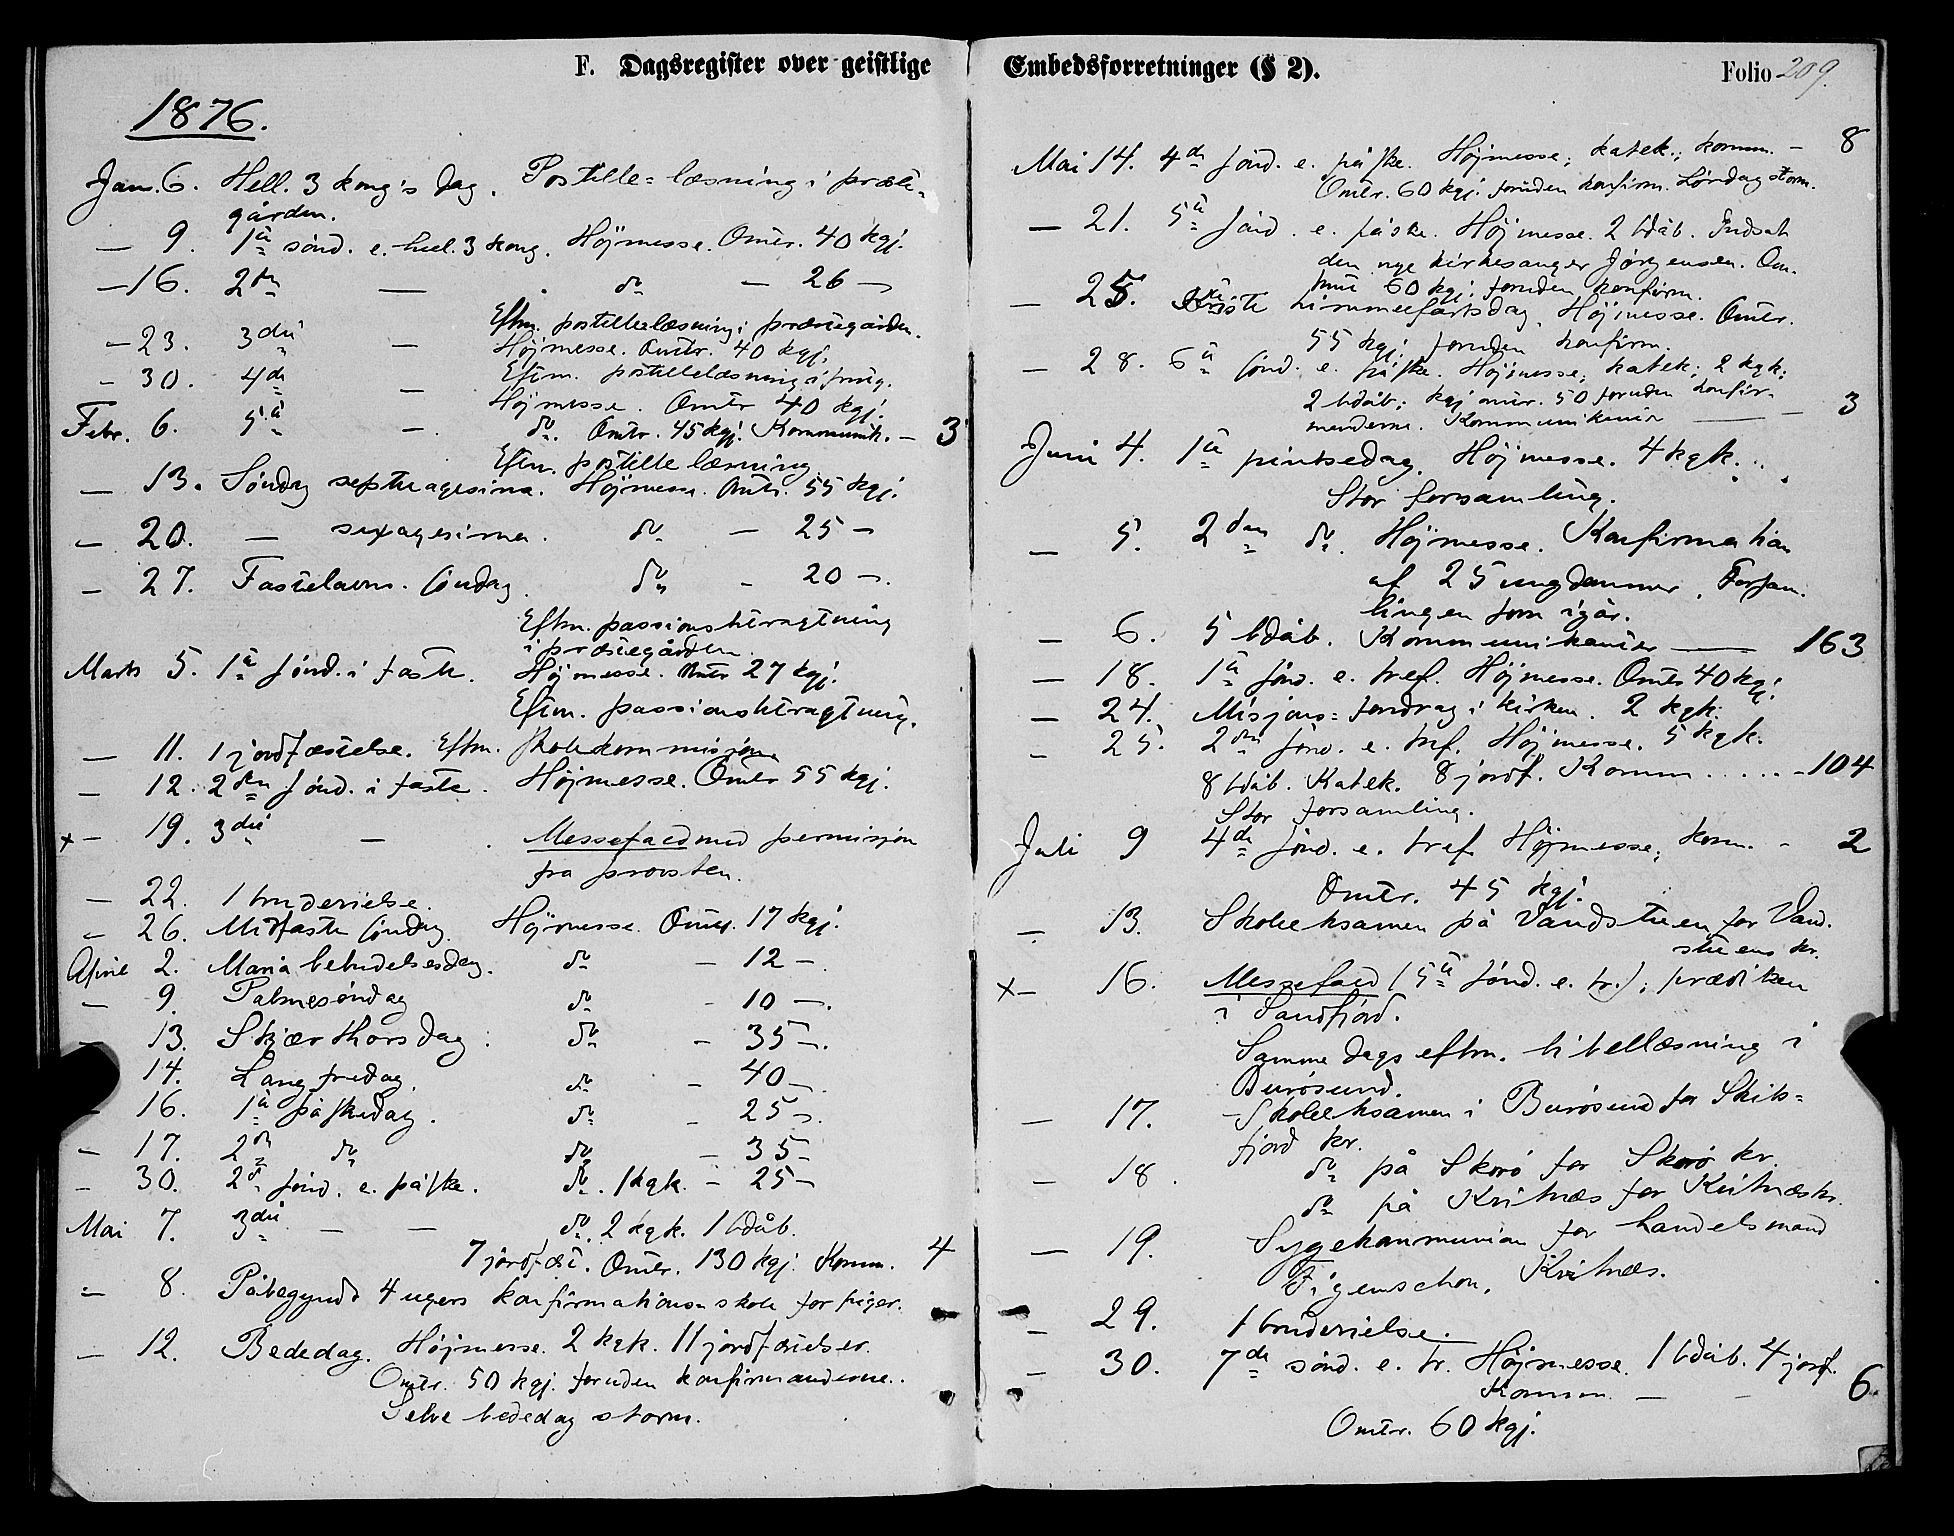 F. Dagsregister over geistlige
1876.
Jan. 6. Hell. 3 kong's dag. Postille=læsning i præste-
gården.
— 9. 1ste sönd. e. hel. 3 kong. Höjmesse. Omtr. 40 kgj.
— 16. 2den — do — 26 —
Eftm. postillelæsning i præstegården.
— 23. 3die — Höjmesse. Omtr. 40 kgj.
Eftm. postillelæsning i præstg.
— 30. 4de — Höjmesse. Omtr. 40 kgj.
Febr. 6. 5te — do. Omtr. 45 kgj. Kommunik. — 3
Eftm. postille læsning.
— 13. Söndag septuagesima. Höjmesse. Omtr. 55 kgj.
— 20. — sexagesima. do — 25 —
— 27. Fastelavns-söndag. do — 20 —.
Eftm. passionsbetragtning
i præstegården.
Marts 5. 1ste sönd. i faste. Höjmesse. Omtr 27 kgj.
Eftm. passionsbetragtning.
— 11. 1 jordfæstelse. Eftm. skolekommissjon.
— 12. 2den sönd. i faste. Höjmesse. Omtr 55 kgj.
x — 19. 3die — . Messefald med permisjon
fra provsten.
— 22. 1 brudevielse.
— 26. Midfaste söndag. Höjmesse. Omtr. 17 kgj.
April 2. Mariæ bebudelsesdag. do — 12 —.
— 9. Palmesöndag do — 10 —.
— 13. Skjærthorsdag: do — 35 —.
14. Langfredag. do — 40 —.
— 16. 1ste påskedag. do — 25 —.
— 17. 2den do do — 35 —
— 30. 2den sönd. e. påske. do. 1 kgk. — 25 —
Mai 7. 3die — — do. 2 kgk. 1 bdåb.
7 jordfæst. Omtr. 130 kgj. Komm. 4
— 8. Påbegyndt 4 ugers konfirmations-skole for piger.
— 12. Bededag. Höjmesse. 2 kgk. 11 jordfæstelser.
Omtr. 50 kgj. foruden konfirmanderne.
Selve bededag storm.
Embedsforretninger (§ 2).
Folio 209.
Mai 14. 4de sönd. e. påske. Höjmesse; katek.; komm. — 8
Omtr. 60 kgj. foruden konfirm. Lördag storm.
— 21. 5te sönd. e. påske. Höjmesse. 2 bdåb. Indsat
den nye kirkesanger Jörgensen. Om-
trent 60 kgj. foruden konfirm.
— 25. Kristi himmelfartsdag. Höjmesse. Omtr.
55 kgj. foruden konfirm.
— 28. 6te sönd. e. påske. Höjmesse; katek; 2 kgk;
2 bdåb; kgj omtr. 50 foruden konfir-
manderne. Kommunikanter — — 3
Juni 4. 1ste pintsedag. Höjmesse. 4 kgk.
Stor forsamling.
— 5. 2den do. Höjmesse. Konfirmation
af 25 ungdommer. Forsam-
lingen som igår.
— 6. 5 bdåb. Kommunikanter — 163
— 18. 1ste sönd. e. tref. Höjmesse. Omtr 40 kgj.
— 24. Misjons=foredrag i kirken. 2 kgk.
— 25. 2den sönd. e. tref. Höjmesse. 5 kgk.
8 bdåb. Katek. 8 jordf. Komm ..... -104
Stor forsamling.
Juli 9 4de sönd. e. tref Höjmesse; kom. - 2
Omtr. 45 kgj.
— 13. Skoleeksamen på Vandstuen for Vand-
stuens kr.
x — 16. Messefald (5te sönd. e. tr.); prædiken
i Sandfjord.
Samme dags eftm. bibellæsning i
Burösund.
— 17. Skoleeksamen i Burösund for Skits=
fjord kr.
— 18. do på Skorö for Skorö kr.
do på Kvitnæs for Kvitnæskr.
— 19. Sygekommunion for handelsmand
Figenschou, Kvitnæs.
— 29. 1 brudevielse.
— 30. 7de sönd. e. tr. Höjmesse. 1 bdåb. 4 jordf.
Komm. — — 6.
Omtr. 60 kgj.